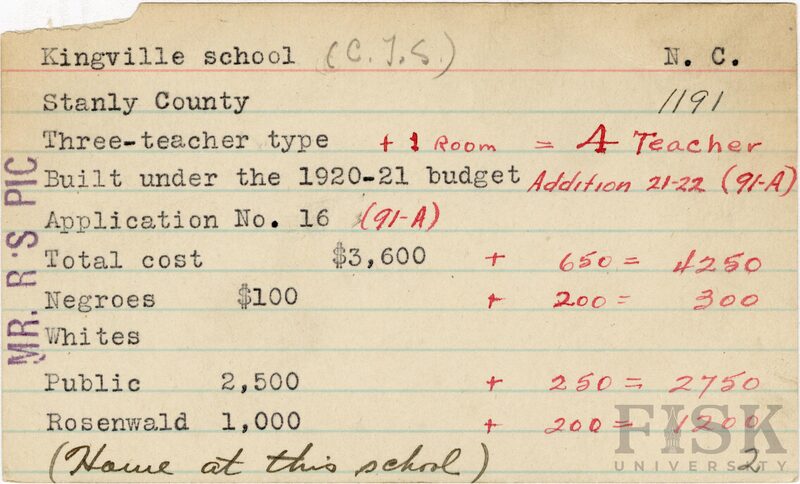 Kingville school (C.T.S.) N. C.
Stanly County 1191
Three-teacher type + 1 Room = 4 Teacher
Built under the 1920-21 budget Addition 21-22 (91-A)
Application No. 16 (91-A)
Total cost $3,600 + 650 = 4250
Negroes $100 + 200 = 300
Whites
Public 2,500 + 250 = 2750
Rosenwald 1,000 + 200 = 1200
(Home at this school) 2
MR. R'S PIC
FISK
UNIVERSITY